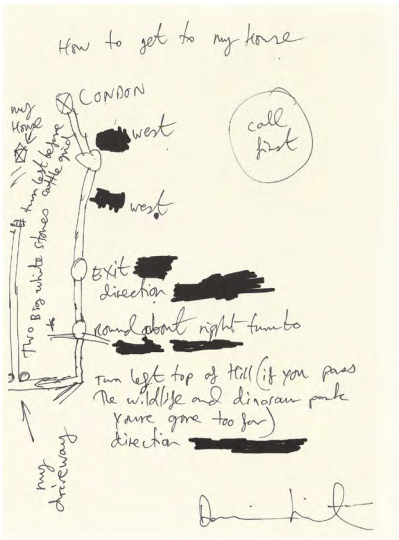 How to get to my House
CONDON
my
House
west
call
first
west.
turn left before
cattle grid
Two Big white stones
EXIT
direction
Round about right turn to
Turn left top of Hill (if you pass
The wildlife and dinosaur park
youre gone too far)
direction
my
driveway